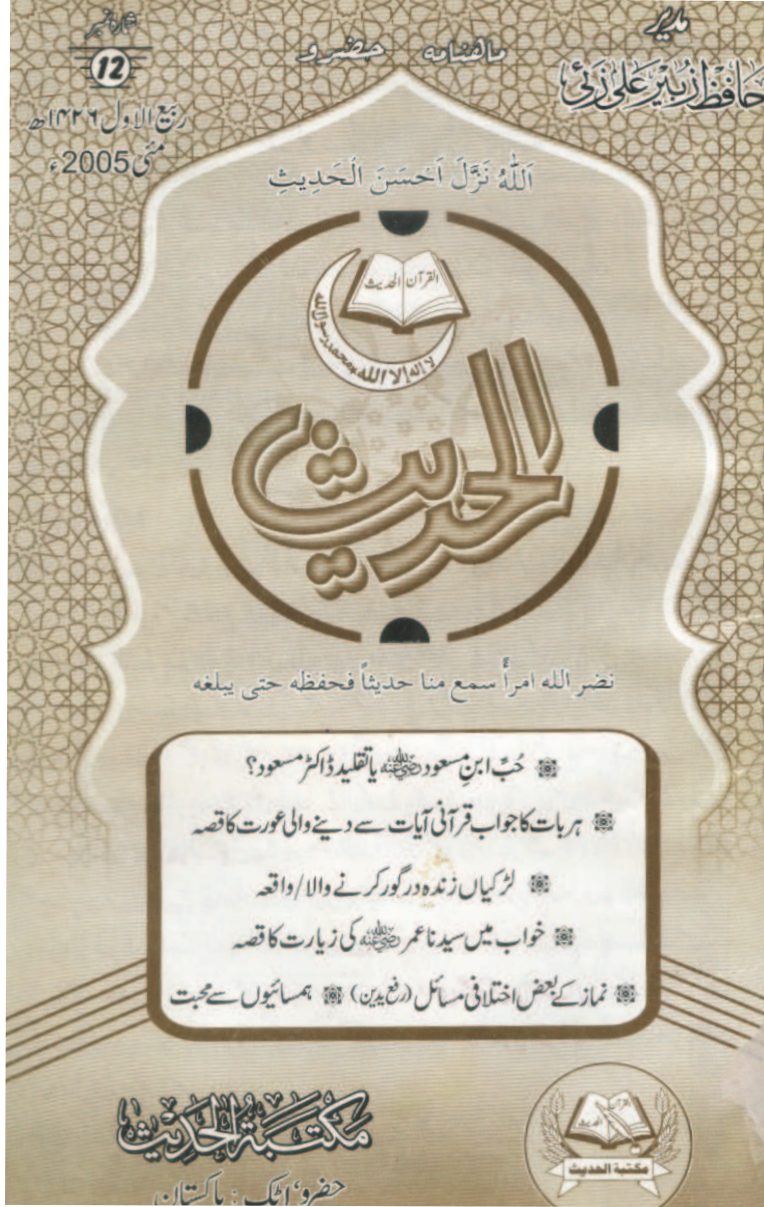 مدیر
حافظ زبیر علی زئی
ماھنامہ حضرو
شمارہ نمبر
12
ربیع الاول ۱۴۲۶ھ
مئی 2005ء
اَللّٰهُ نَزَّلَ اَحسَنَ الحَدِيثِ
القرآن الحدیث
لا إله إلا الله محمد رسول الله
الحدیث
نضر الله امرأً سمع منا حديثاً فحفظه حتى يبلغه
حُبِّ ابنِ مسعود رضی اللہ عنہ یا تقلیدِ ڈاکٹر مسعود؟
ہر بات کا جواب قرآنی آیات سے دینے والی عورت کا قصہ
لڑکیاں زندہ درگور کرنے والا/واقعہ
خواب میں سیدنا عمر رضی اللہ عنہ کی زیارت کا قصہ
نماز کے بعض اختلافی مسائل (رفع یدین) ہمسائیوں سے محبت
مکتبۃ الحدیث
حضرو، اٹک : پاکستان
القرآن الحدیث
مكتبة الحديث